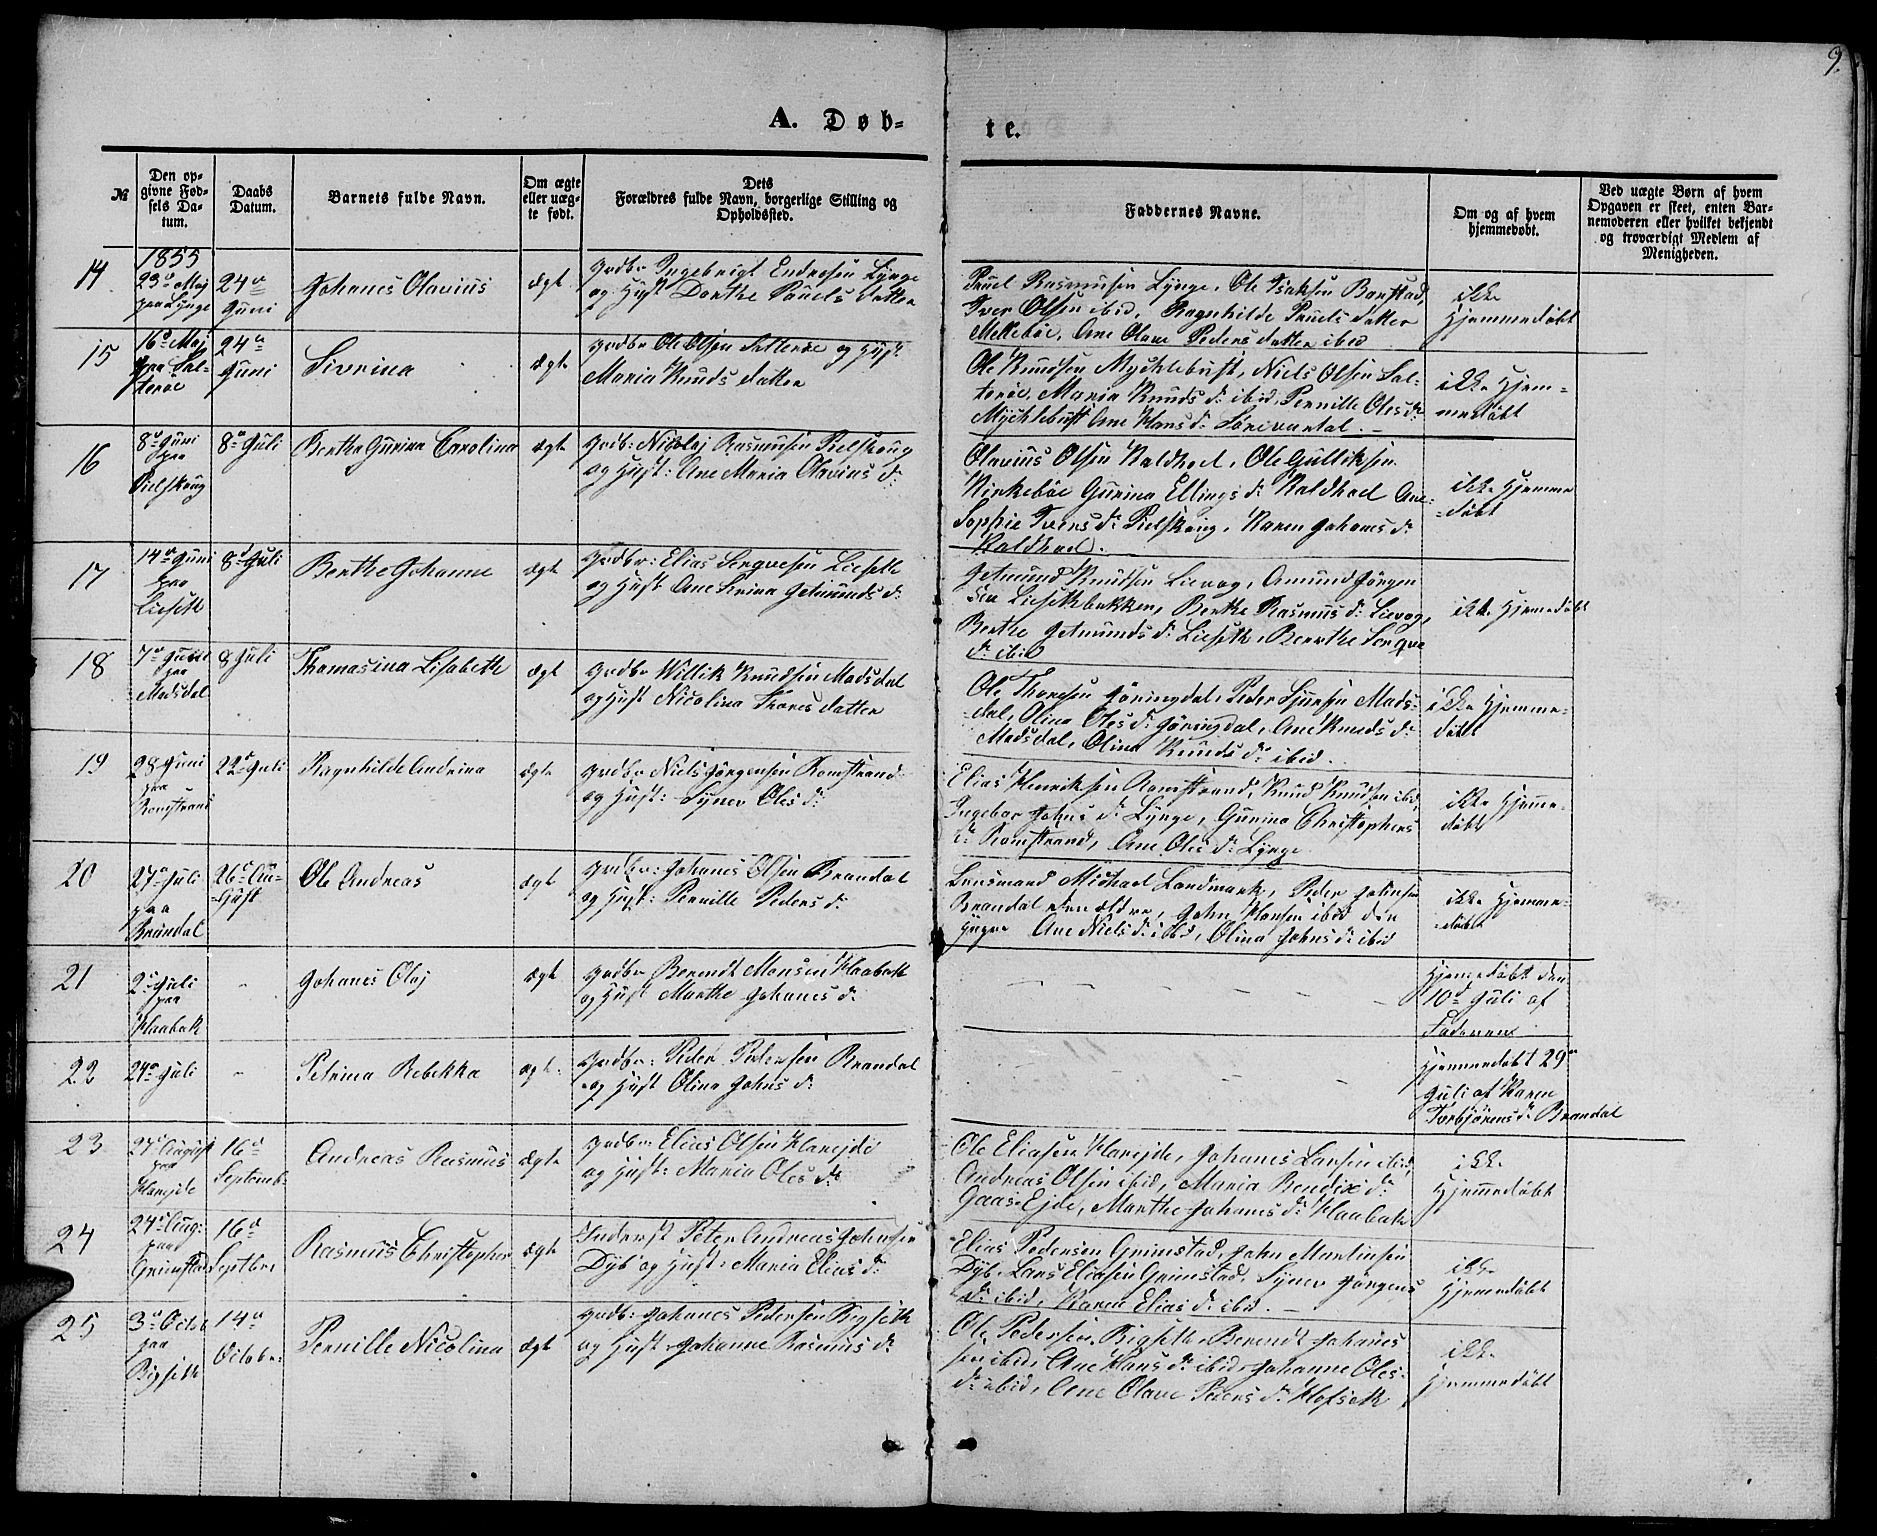 9.
A. Døb-
te.
№
Den op-
givne Fød-
sels Da-
tum.
Daabs
Datum.
Barnets fulde Navn.
Om ægte
eller uæg-
te født.
Dets
Forældres fulde Navn, borgerlige Stilling og
Opholdssted.
Faddernes Navne.
Om og af hvem
hjemmedøbt.
Ved uægte Børn af hvem
Opgaven er skeet, enten Bar-
nemoderen eller hvilket bekjendt
og troværdigt Medlem af
Menigheden.
1855
14
23de Maj
paa Lynge
24de
Juni
Johanes Olavius
ægt
Grdbr Ingebrigt Endresen Lynge
og Hust Dorthe Pouels datter
Pouel Rasmusen Lynge, Ole Isaksen Barstad,
Iver Olsen ibid, Ragnhilde Pouels datter
Mekebøe, Ane Olave Peders datter ibid
ikke
Hjemmedøbt
15
16de Maj
paa Sal-
terøe
24de
Juni
Sivrina
ægt
Grdbr Ole Olsen Salterøe og Hust
Maria Knuds datter
Ole Knudsen Mychlebust, Niels Olsen Sal-
terøe, Maria Knuds dr ibid, Pernille Oles dr
Mychlebust Ane Hans dr
ikke Hjem-
medøbt
16
8de Juni
paa
Pielskoug
8de Juli
Berthe Gurina Carolina
ægt
Grdb: Nicolaj Rasmusen Pielskoug
og Hust: Ane Maria Olavius dr
Olavius Olsen Raldhoel, Ole Gulliksen
Kirkebøe Gurina Ellings dr Raldhoel Ane
Sophie Ivers dr Pielskoug, Karen Johanes dr
Raldhoel.
ikke Hjemme
-døbt
17
14de Juni
paa
Lieseth
8de Juli
Berthe Johanne
ægt
Grdbr: Elias Sergvesen Lieseth
og Hust Ane Sirina Getmunds dr
Getmund Knudsen Lievog, Amund Jørgen
sen Liesethbakken, Berthe Rasmus dr Lievog,
Berthe Getmunds dr Lieseth, Berthe Sergve
dr ibid
ikke Hjemedøbt
18
7de Juni
paa
Madsdal
8 Juli
Thomasina Lisabeth
ægt
Grdbr Willik Knudsen Madsdal
og Hust Nicolina Thores datter
Ole Thoresen Jøringdal, Peder Sjursen Mads-
dal, Olina Oles dr Jøringdal, Ane Knuds dr
Madsdal, Olina Knuds dr ibid.
ikke Hjemme-
døbt
19
28 Juni
paa
Romstrand
22de Juli
Ragnhilde Andrina
ægte
Grdbr Niels Jørgensen Romstrand
og Hust: Synev Oles dr
Elias Henriksen Romstrand, Knud Knudsen ibid,
Ingebor Johns dr Lynge, Gurina Christophers
dr Romstrand, Ane Oles dr Lynge
ikke Hjemme-
døbt
20
27de Juli
paa
Brandal
26de Au-
gust
Ole Andreas
ægt
Grdbr: Johanes Olsen Brandal
og Hust: Pernille Peders dr
Lensmand Michael Landmark, Peder Johnsen
Brandal den ældre, John Hansen ibid den
yngre Ane Niels dr ibid, Olina Johns dr ibid
ikke Hjemme-
døbt
21
2de Juli
paa
Haabak
-
Johanes Olaj
ægt
Grdbr Berendt Monsen Haabak
og Hust Marthe Johanes dr
Hjemedøbt den
10de Juli af
Faderen
22
24de Juli
-
Petrina Rebekka
ægt
Grdbr: Peder Pedersen Brandal
og Hust Olina Johns dr
Hjemmedøbt 29de
Juli af Karen
Torbjørens dr Brandal
23
27de August
paa
Harejde
16de
Septemb.
Andreas Rasmus
ægte
Grdbr: Elias Olsen Harejde
og Hust: Maria Oles dr
Ole Eliasen Harejde, Johanes Larsen ibid,
Andreas Olsen ibid, Maria Bendix dr
Gaas-Ejde, Marthe Johanes dr Haabak
ikke
Hjemmedøbt
24
24de Aug:
paa
Grimstad
16de
Septbr.
Rasmus Christopher
ægt
Inderst Peter Andreas Johnsen
Dyb og Hust: Maria Elias dr
Elias Pedersen Grimstad, John Martinsen
Dyb, Lars Eliasen Grimstad, Synev Jørgens
dr ibid, Karen Elias dr ibid.
ikke
Hjemmedøbt
25
3de Octob
paa
Rigseth
14de
Octobr:
Pernille Nicolina
ægt
Grdb: Johanes Pedersen Rigseth
og Hust Johanne Rasmus dr
Ole Pedersen Rigseth, Berendt Johanes
sen ibid, Ane Hans dr ibid, Johanne Oles
dr ibid, Ane Olave Peders dr Hofseth
ikke
Hjemmedøbt